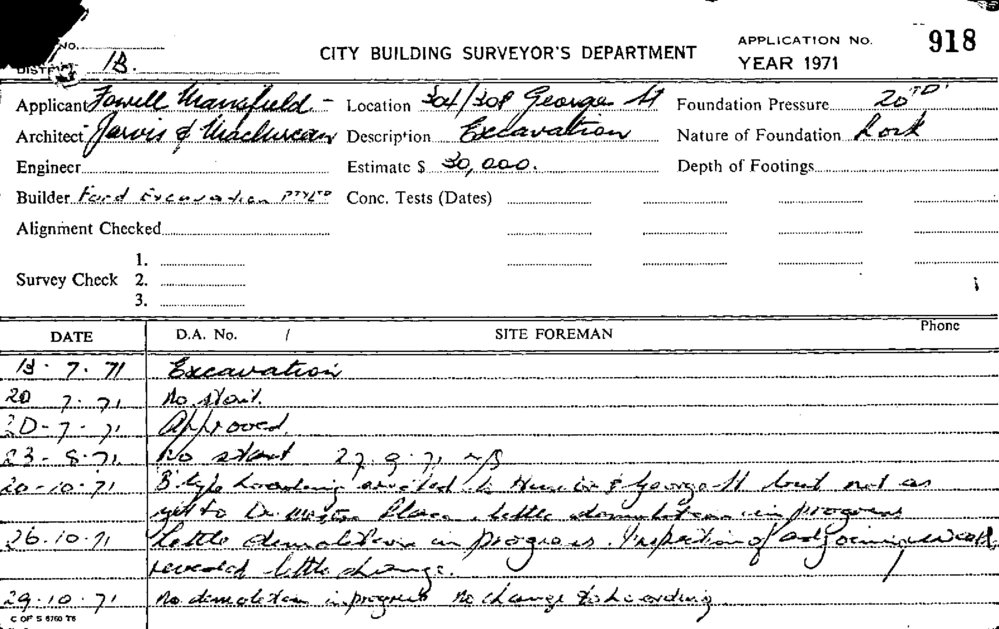 No.
918
CITY BUILDING SURVEYOR'S DEPARTMENT
APPLICATION No.
YEAR 1971
DISTRICT 1B.
Applicant Fowell Mansfield - Location 304/308 George St Foundation Pressure 20 TD'
Architect Jarvis & Maclurcan Description Excavation Nature of Foundation Rock
Engineer Estimate $ 30,000. Depth of Footings
Builder Ford Excavation PTYLTD Conc. Tests (Dates)
Alignment Checked
1.
Survey Check 2.
3.
DATE D.A. No. / SITE FOREMAN Phone
13.7.71 Excavation
20 7.71 No start.
20-7-71 Approved.
23-8-71. No start 27.9.71 N/S
20-10-71 B type hoarding erected to Hunter & George St but not as
yet to De Mestre Place. little demolition in progress
26.10.71 Little demolition in progress. Inspection of adjoining
revealed little change.
29.10.71 No demolition in progress No change to hoarding
C OF S 6760 T6